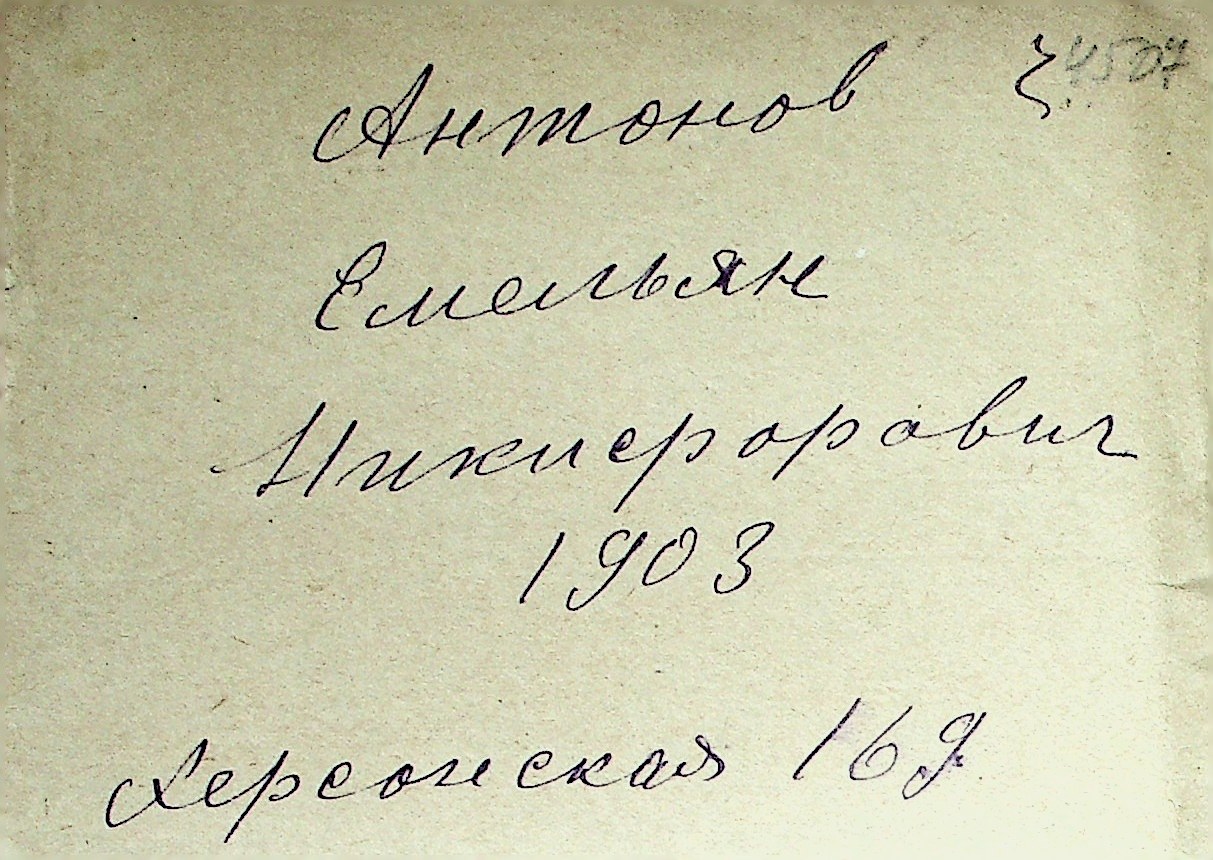 Антонов
Емельян
Никифорович
1903
Херсонская 169